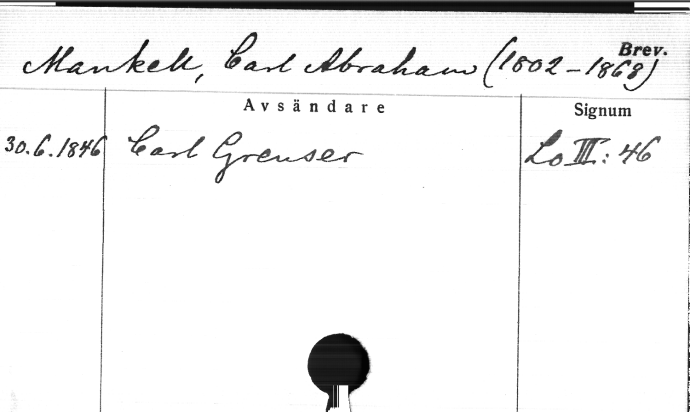 Brev.
Mankell, Carl Abraham (1802-1868)
Avsändare Signum
30.6.1846 Carl Grenser Lo III:46